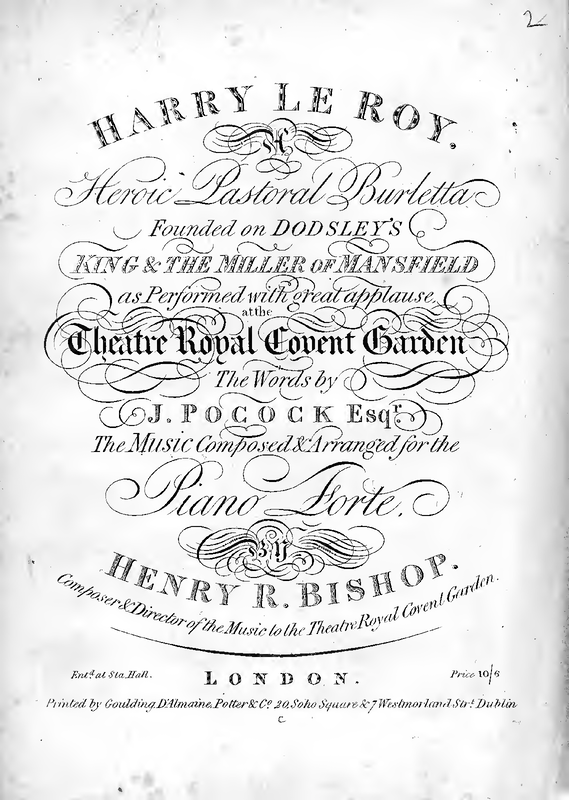 2
HARRY LE ROY.
A
Heroic Pastoral Burletta
Founded on DODSLEY'S
KING & THE MILLER OF MANSFIELD
as Performed with great applause,
at the
Theatre Royal Covent Garden
The Words by
J. POCOCK Esqr.
The Music Composed & Arranged for the
Piano Forte.
BY
HENRY R. BISHOP.
Composer & Director of the Music to the Theatre Royal Covent Garden.
Entd. at Sta. Hall.
LONDON.
Price 10/6
Printed by Goulding, D'Almaine, Potter & Co. 20, Soho Square & 7 Westmorland Strt. Dublin
C